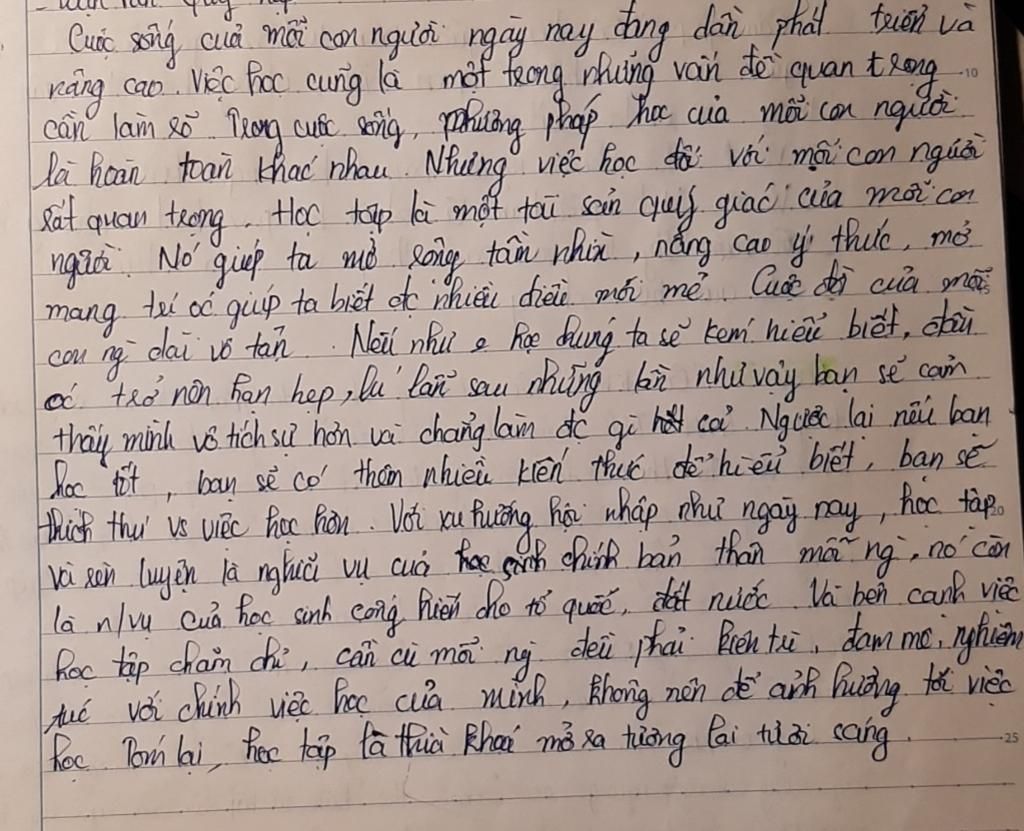 Cuộc sống của mỗi con người ngày nay đang dần phát triển và
nâng cao. Việc học cũng là một trong những vấn đề quan trọng
cần làm rõ. Trong cuộc sống, phương pháp học của mỗi con người
là hoàn toàn khác nhau. Nhưng việc học đối với mỗi con người
rất quan trọng. Học tập là một tài sản quý giác của mỗi con
người. Nó giúp ta mở rộng tầm nhìn, nâng cao ý thức, mở
mang trí óc giúp ta biết đc nhiều điều mới mẻ. Cuộc đời của mỗi
con ng dài vô tận. Nếu như học đúng ta sẽ kém hiểu biết, đầu
óc trở nên hạn hẹp, lần sau những lần như vậy bạn sẽ cảm
thấy mình vô tích sự hơn và chẳng làm đc gì hết cả. Ngược lại nếu bạn
học tốt, bạn sẽ có thêm nhiều kiến thức để hiểu biết, bạn sẽ
thích thú vs việc học hơn. Với xu hướng hội nhập như ngày nay, học tập
và rèn luyện là nghĩa vụ của học sinh chính bản thân mỗi ng, nó còn
là n/vụ của học sinh cống hiến cho tổ quốc, đất nước. Và bên cạnh việc
học tập chăm chỉ, cần cù mỗi ng đều phải kiên trì, đam mê, nghiêm
túc với chính việc học của mình, không nên để ảnh hưởng tới việc
học. Tóm lại, học tập là thìa khoá mở ra tương lai tươi sáng.